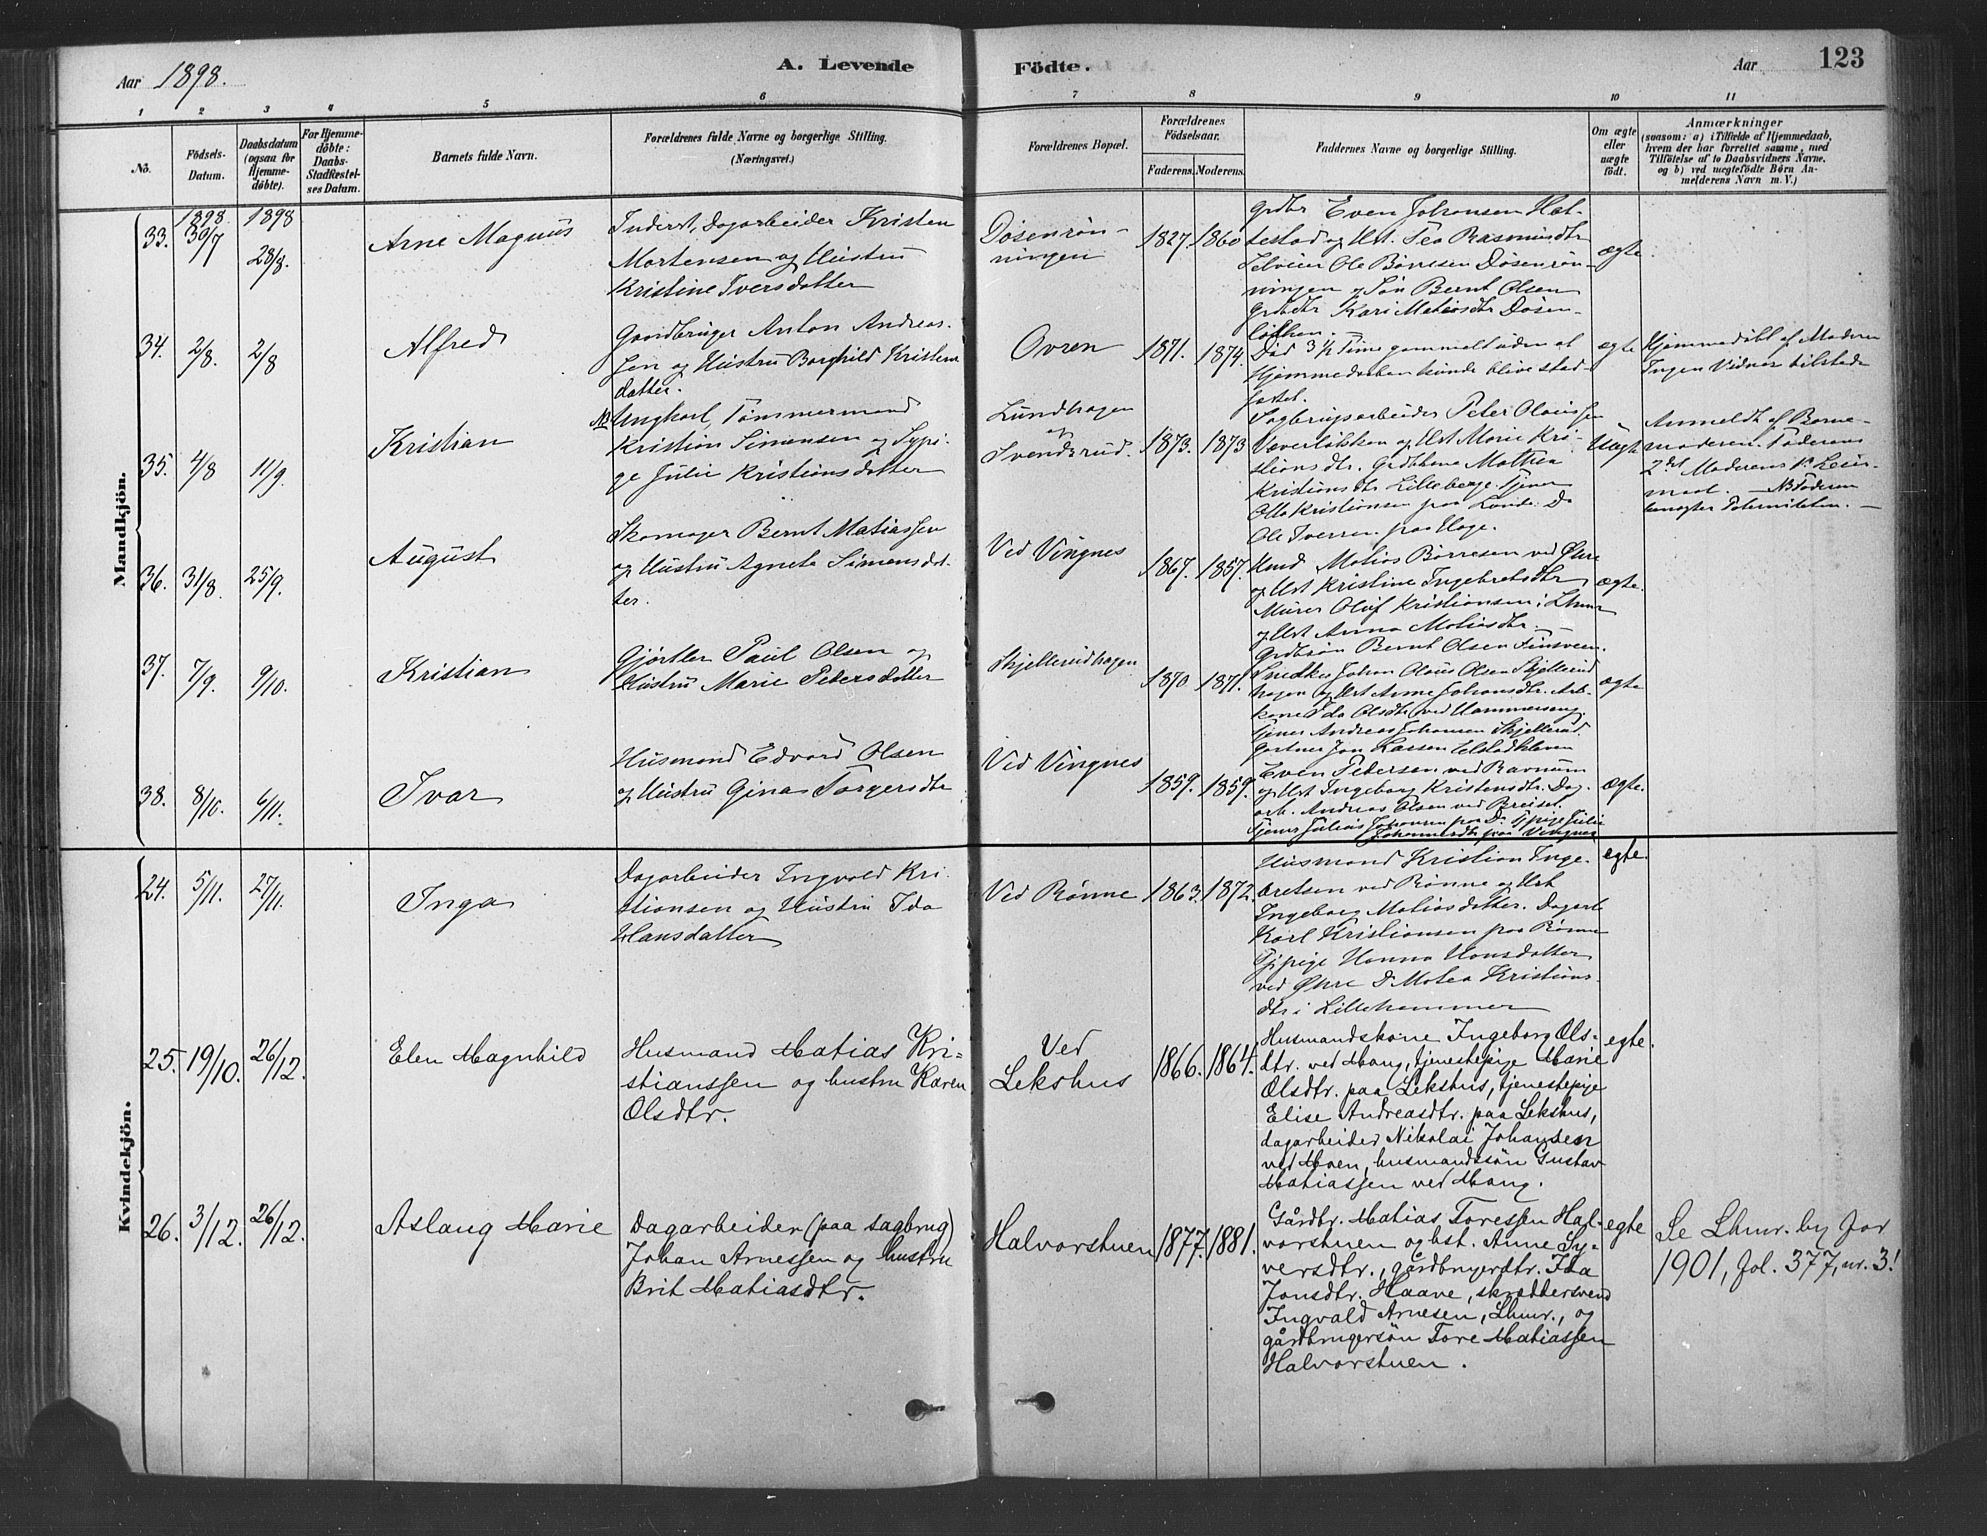 Aar 1898.
A. Levende
Födte.
Aar
123
1 2 3 4 5 6 7 8 9 10 11
No.
Födsels-
Datum.
Daabsdatum
(ogsaa for
Hjemme-
döbte).
For Hjemme-
döbte:
Daabs-
Stadfæstel-
ses Datum.
Barnets fulde Navn.
Forældrenes fulde Navne og borgerlige Stilling.
(Næringsvei.)
Forældrenes Bopæl.
Forældrenes
Födselsaar.
Faderens. Moderens.
Faddernes Navne og borgerlige Stilling.
Om ægte
eller
uægte
født.
Anmærkninger
(saasom: a) i Tilfælde af Hjemmedaab,
hvem der har forrettet samme, med
Tilföielse af to Daabsvidners Navne,
og b) ved uægtefödte Börn An-
melderens Navn m. V.)
Mandkjön.
33.
1898
30/7
1898
28/8.
Arne Magnus
Inderst, Dagarbeider Kristen
Mortensen og Hustru
Kristine Iversdatter
Døsenrøn-
ningen
1827. 1860
Even Johansen Hal-
testad og Hst. Tea Rasmusdtr
Ole Børresen Døsenrøn-
ningen og Søn Bernt Olsen
Kari Matiasdtr Døsen-
løkken.
ægte.
34.
2/8.
2/8
Alfred
Gaardbruger Anton Andreas-
sen og Hustru Borghild Kristens
datter.
Ovren
1871. 1874.
Død 3 1/2 Time gammelt uden at
Hjemmedaaben kunde blive stad-
fæstet.
ægte
Hjemmedøbt af Moderen
Ingen Vidner tilstede
35.
4/8
11/9.
Kristian
NB Ungkarl, Tømmermand
Kristian Simensen og Tjpi-
ge Julie Kristiansdatter
Lundhagen
og
Svendsrud.
1873. 1873
Sagbrugsarbeider Peter Olaussen
og Hst Marie Kri-
stiansdtr. Mathea
Kristiansdtr Lilleberge Tjener
Otto Kristiansen paa Lunde. Do
Ole Iversen paa Hage.
Uægte
Anmeldt af Barne-
moderen. Faderens
2det Moderens 1ste Leier-
maal. — NB Faderen
benegter Paterniteten. —
36.
31/8.
25/9.
August
Skomager Bernt Matiassen
og Hustru Agnete Simensdat-
ter.
Ved Vingnes
1867. 1857.
Hmd Matias Børresen ved Øhre
og Hst Kristine Ingebretsdtr
Murer Oluf Kristiansen i Lhmr
og Hst Anna Matiasdtr.
Bernt Olsen Finsveen.
ægte.
37.
7/9.
9/10.
Kristian
Gjørtler Paul Olsen og
Hustru Marie Petersdatter
Skjellerudhagen
1870. 1871.
Snedker Johan Olaus Olsen Skjellerud
hagen og Hst Anne Johansdtr. Arb-
kone Ida Olsdtr ved Hammerseng.
Tjener Andreas Johansen Skjellerud.
Gartner Jon Larsen
ægte
38.
8/10.
6/11.
Ivar
Husmand Edvard Olsen
og Hustru Gina Torgersdtr
Ved Vingnes
1859. 1859.
Even Petersen ved Ravnum
og Hst Ingeborg Kristensdtr. Dag-
arb. Andreas Olsen ved Breiset.
Tjener Julius Johansen paa Do Tjpige Julie
Johannesdtr paa Vingnes
ægte.
Kvindekjön.
24.
5/11.
27/11.
Inga
Dagarbeider Ingvald Kri-
stiansen og Hustru Ida
Hansdatter
Ved Rønne
1863. 1872.
Husmand Kristian Inge-
bretsen ved Rønne og Hst
Ingeborg Matiasdatter. Dagarb
Karl Kristiansen paa Rønne
Tjpige Hanna Hansdatter
ved Øhre Do Matea Kristians
dtr i Lillehammer
egte.
25.
19/10.
26/12.
Elen Magnhild
Husmand Matias Kri-
stianssen og hustru Karen
Olsdtr.
Ved
Lekshus
1866. 1864.
Husmandskone Ingeborg Ols-
dtr. ved Haug, tjenestepige Marie
Olsdtr. paa Lekshus, tjenestepige
Elise Andreasdtr. paa Lekshus,
dagarbeider Nikolai Johansen
ved Moen, husmandssön Gustav
Matiassen ved Haug.
egte.
26.
3/12.
26/12.
Aslaug Marie
Dagarbeider (paa sagbrug)
Johan Arnessen og hustru
Brit Matiasdtr.
Halvorstuen
1877. 1881.
Gårdbr. Matias Toressen Hal-
vorstuen og hst. Anne Sy-
versdtr., gårdbrugerdtr. Ida
Jonsdtr. Haave, skræddersvend
Ingvald Arnesen, Lhmr., og
gårdbrugersön Tore Matiassen
Halvorstuen.
egte
Se Lhmr. by for
1901, fol. 377, nr. 3!